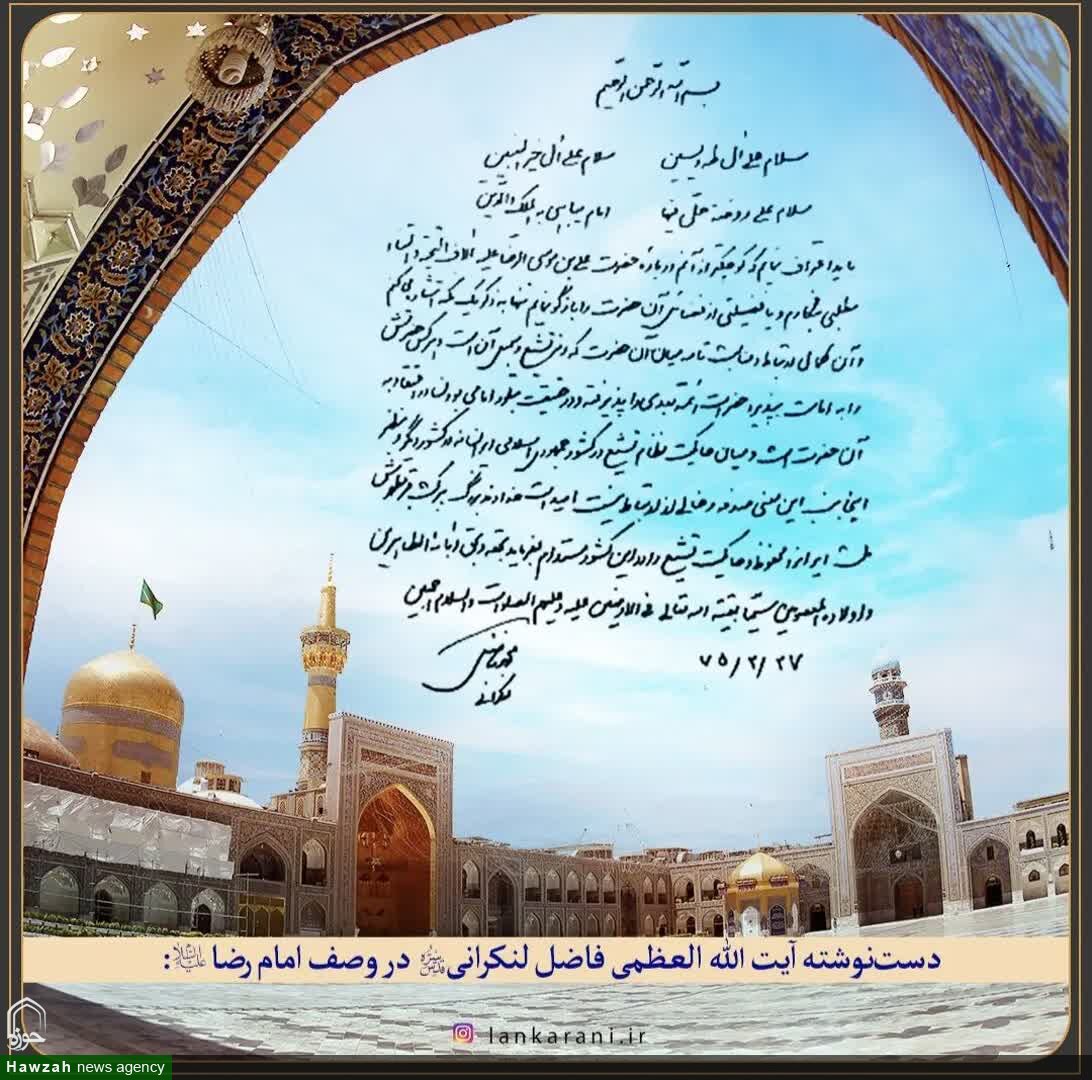 بسم الله الرحمن الرحیم
سلام علی آل طه و یسین سلام علی آل خیر النبیین
سلام علی روضة حلّ فیها امام یباهی به الملک و الدین
باید اعتراف نمایم که کوچکتر از آنم درباره حضرت علی بن موسی الرضا علیه آلاف التحیة و الثناء
مطلبی بنگارم و یا فضیلتی از فضائل آن حضرت را بازگو نمایم تنها به ذکر یک نکته اشاره می کنم
و آن کمال ارتباط و مناسبت تامه میان آن حضرت که و تشیع و آن است و هر کس حضرتش
را به امامت بپذیرد ائمه بعدی را پذیرفته و در حقیقت امامی بودن در اعتقاد به
آن حضرت است و میان حاکمیت نظام تشیع در کشور جمهوری اسلامی ایران نه در کشور دیگر و
این معنی و خالی از ارتباط نیست امید است خداوند بزرگ به برکت
ملت ایران را محفوظ و حاکمیت تشیع را در این کشور مستدام بفرماید بحقه و بحق آبائه الطاهرین
و اولاده المعصومین سیما بقیة الله تعالی فی الارضین علیه و علیهم الصلوات و السلام اجمعین
۷۵/۲/۲۷
محمد فاضل
لنکرانی
دست‌نوشته آیت الله العظمی فاضل لنکرانی قدس سره در وصف امام رضا علیه السلام:
lankarani.ir
حوزه
Hawzah news agency